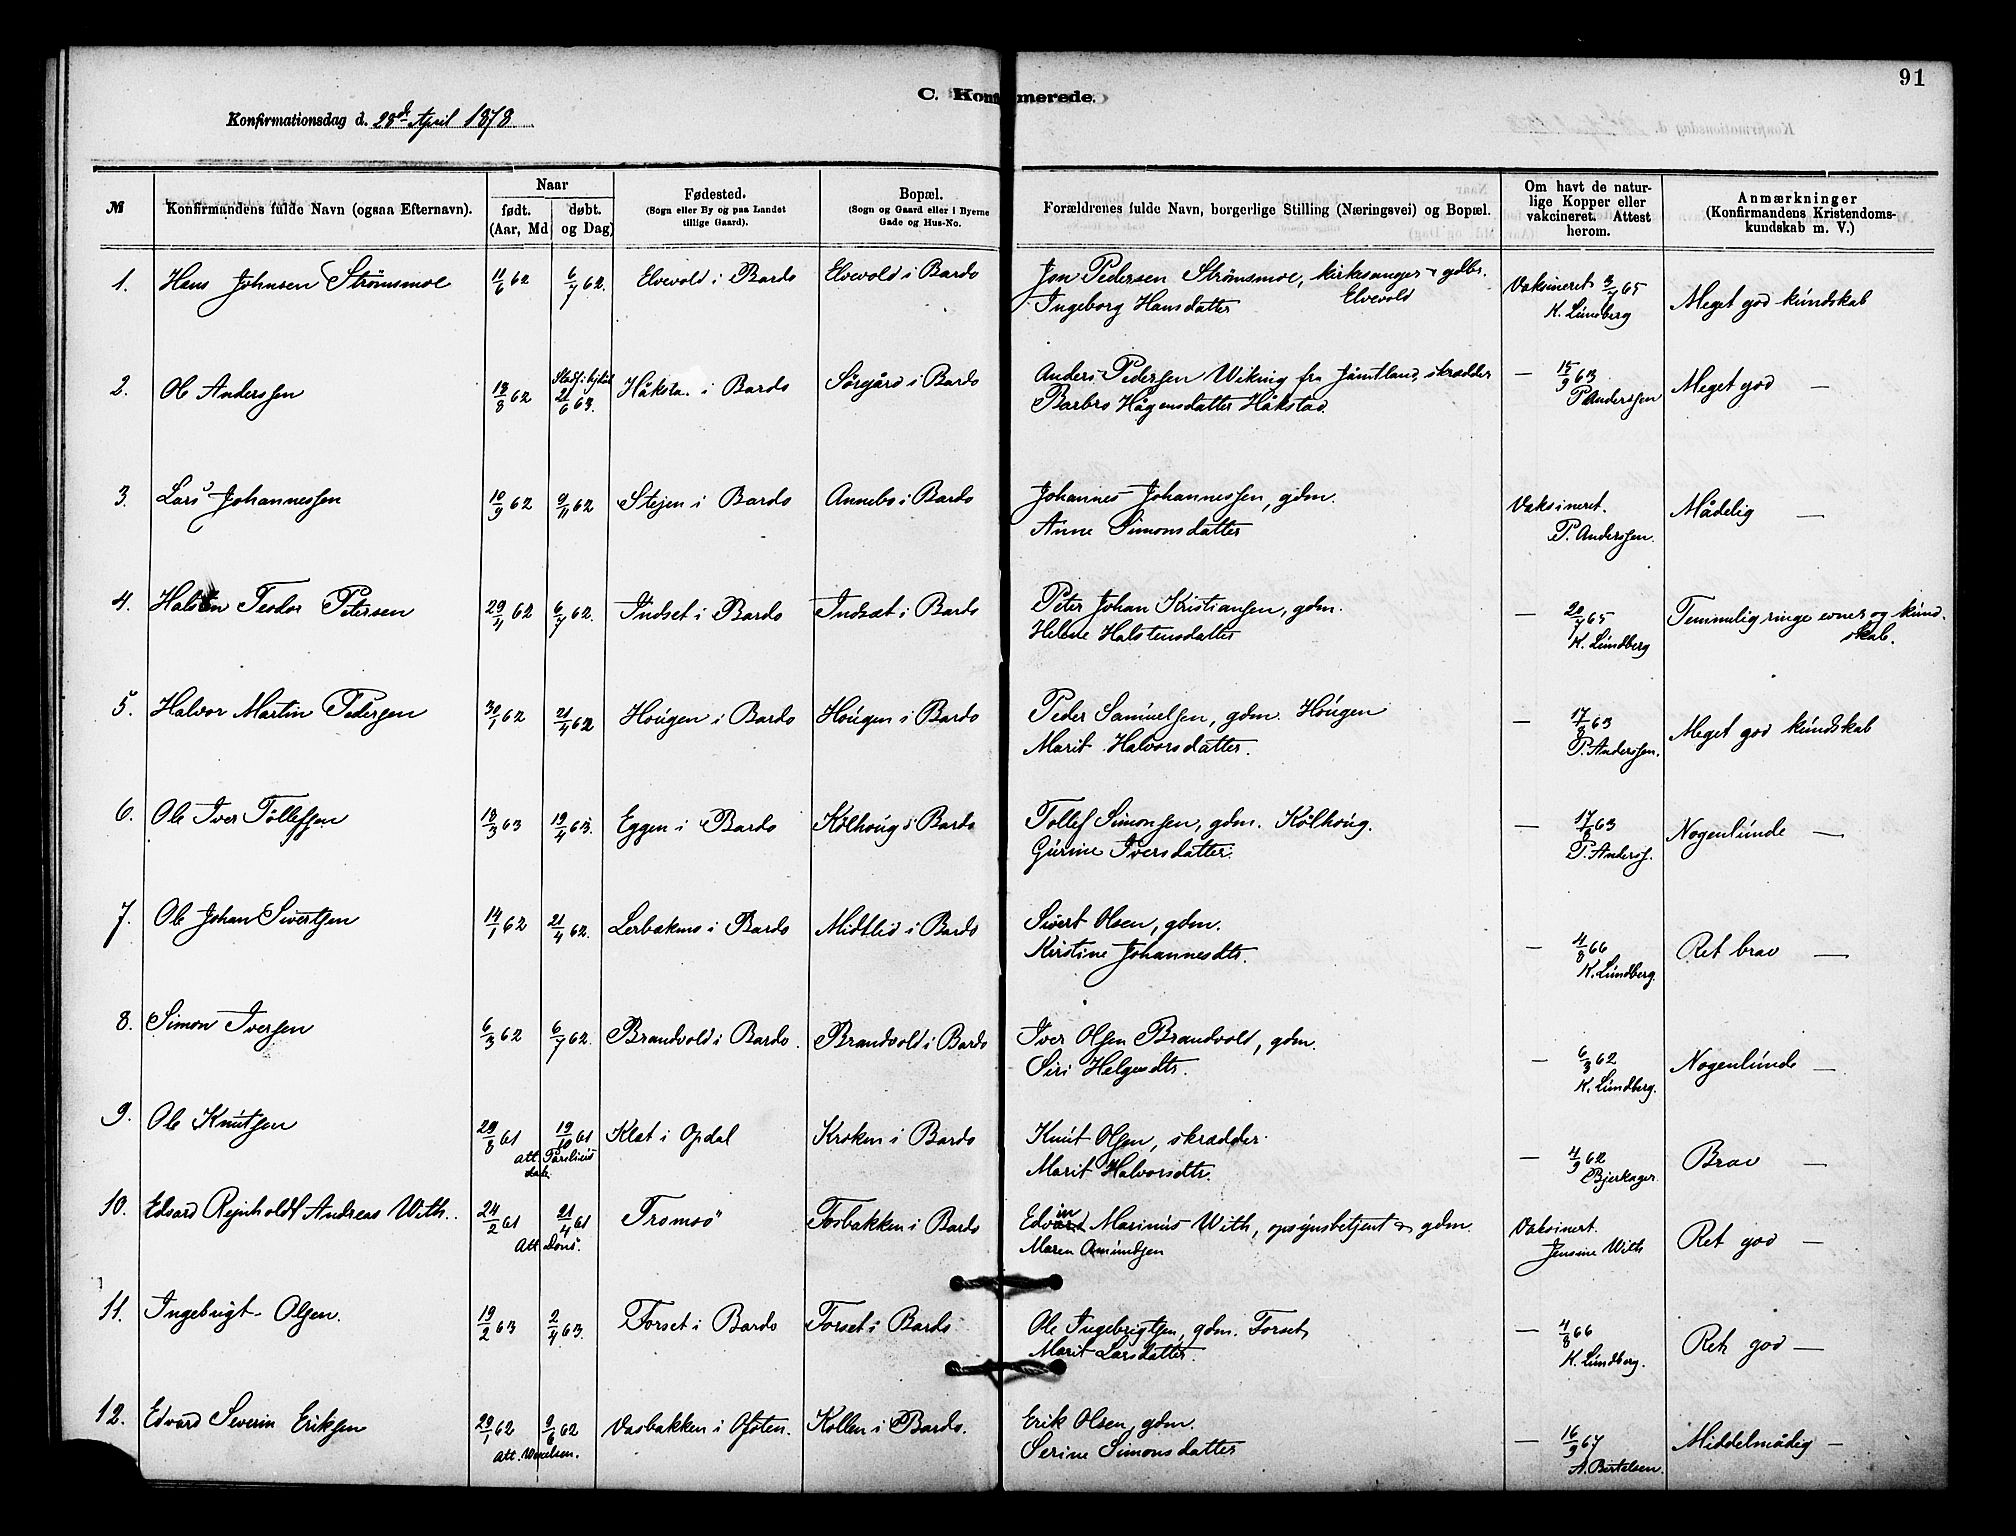 91
C. Konfirmerede.
Konfirmationsdag d. 28de April 1878
№ Konfirmandens fulde Navn (ogsaa Efternavn). Naar født. (Aar, Md døbt. og Dag) Fødested. (Sogn eller By og paa Landet tillige Gaard). Bopæl. (Sogn og Gaard eller i Byerne Gade og Hus-No. Forældrenes fulde Navn, borgerlige Stilling (Næringsvei) og Bopæl. Om havt de naturlige Kopper eller vakcineret. Attest herom. Anmærkninger (Konfirmandens Kristendomskundskab m. V.)
1. Hans Johnsen Strømsmoe 11/6 62 6/7 62. Elvevold i Bardo Elvevold i Bardo Jon Pedersen Strømsmoe, kirkesanger & gdbr. Vaksineret 3/7 65 Meget god kundskab
Ingeborg Hansdatter Elvevold K. Lundberg
2. Ole Anderssen 18/8 62 21/6 63. i Bardo Sørgård i Bardo Anders Pedersen Wiknig fra Jämtland, skrædder — 15/9 63 Meget god —
Barbro Hågensdatter Håkstad. P Anderssen
3. Lars Johannessen 10/9 62 9/11 62 Stejen i Bardo Annebo i Bardo Johannes Johannessen, gdm. Vaksineret. Mådelig —
Anne Simonsdatter P. Anderssen.
4. Halsten Teodor Petersen 29/4 62 6/7 62. Indset i Bardo Indsæt i Bardo Peter Johan Kristiansen, gdm. — 20/7 65 Temmelig ringe evner og kund-
Helene Halstensdatter K. Lundberg skab.
5. Halvor Martin Pedersen 30/1 62 21/4 62 Hougen i Bardo Hougen i Bardo Peder Samuelsen, gdm. Hougen — 17/8 63 Meget god kundskab
Marit Halvorsdatter. P. Anderssen.
6. Ole Iver Tollefsen 18/3 63 19/4 63. Eggen i Bardo Kolhoug i Bardo Tollef Simonsen, gdm. Kolhoug. — 17/8 63 Nogenlunde —
Gurine Iversdatter. P. Anderss.
7. Ole Johan Sivertsen 14/1 62 21/4 62. Lerbakmo i Bardo Midtlid i Bardo Sivert Olsen, gdm. — 4/8 66 Ret brav —
Kirstine Johannesdtr. K. Lundberg.
8. Simon Iversen 6/3 62 6/7 62. Brandvold i Bardo. Brandvold i Bardo Iver Olsen Brandvold, gdm. — 6/3 62 Nogenlunde —
Siri Helgesdtr. K. Lundberg.
9. Ole Knutsen 29/8 61 19/10 61 Klæt i Opdal Kroken i Bardo Knut Olsen, skrædder. — 4/9 62 Brav —
Att. Marit Halvorsdtr. Bjerkager.
10. Edvard Rejnholdt Andreas With. 24/2 61 21/4 61 Tromsö Fosbakken i Bardo Edvin Marinus With, opsynsbetjent & gdm. Vaksinert. Ret god —
Att. Dons. Maren Amundsen Jensine With
11. Ingebrigt Olsen. 19/2 63 2/4 63. Forset i Bardo Forset i Bardo. Ole Ingebrigtsen, gdm. Forset. — 4/8 66 Ret god —
Marit Larsdatter. K. Lundberg.
12. Edvard Severin Eriksen 29/1 62 9/6 62 Vasbakken i Ofoten. Kollen i Bardo. Erik Olsen, gdm. — 16/9 67 Middelmådig —
Att. Wexelsen. Serine Simonsdatter A. Bertelsen.